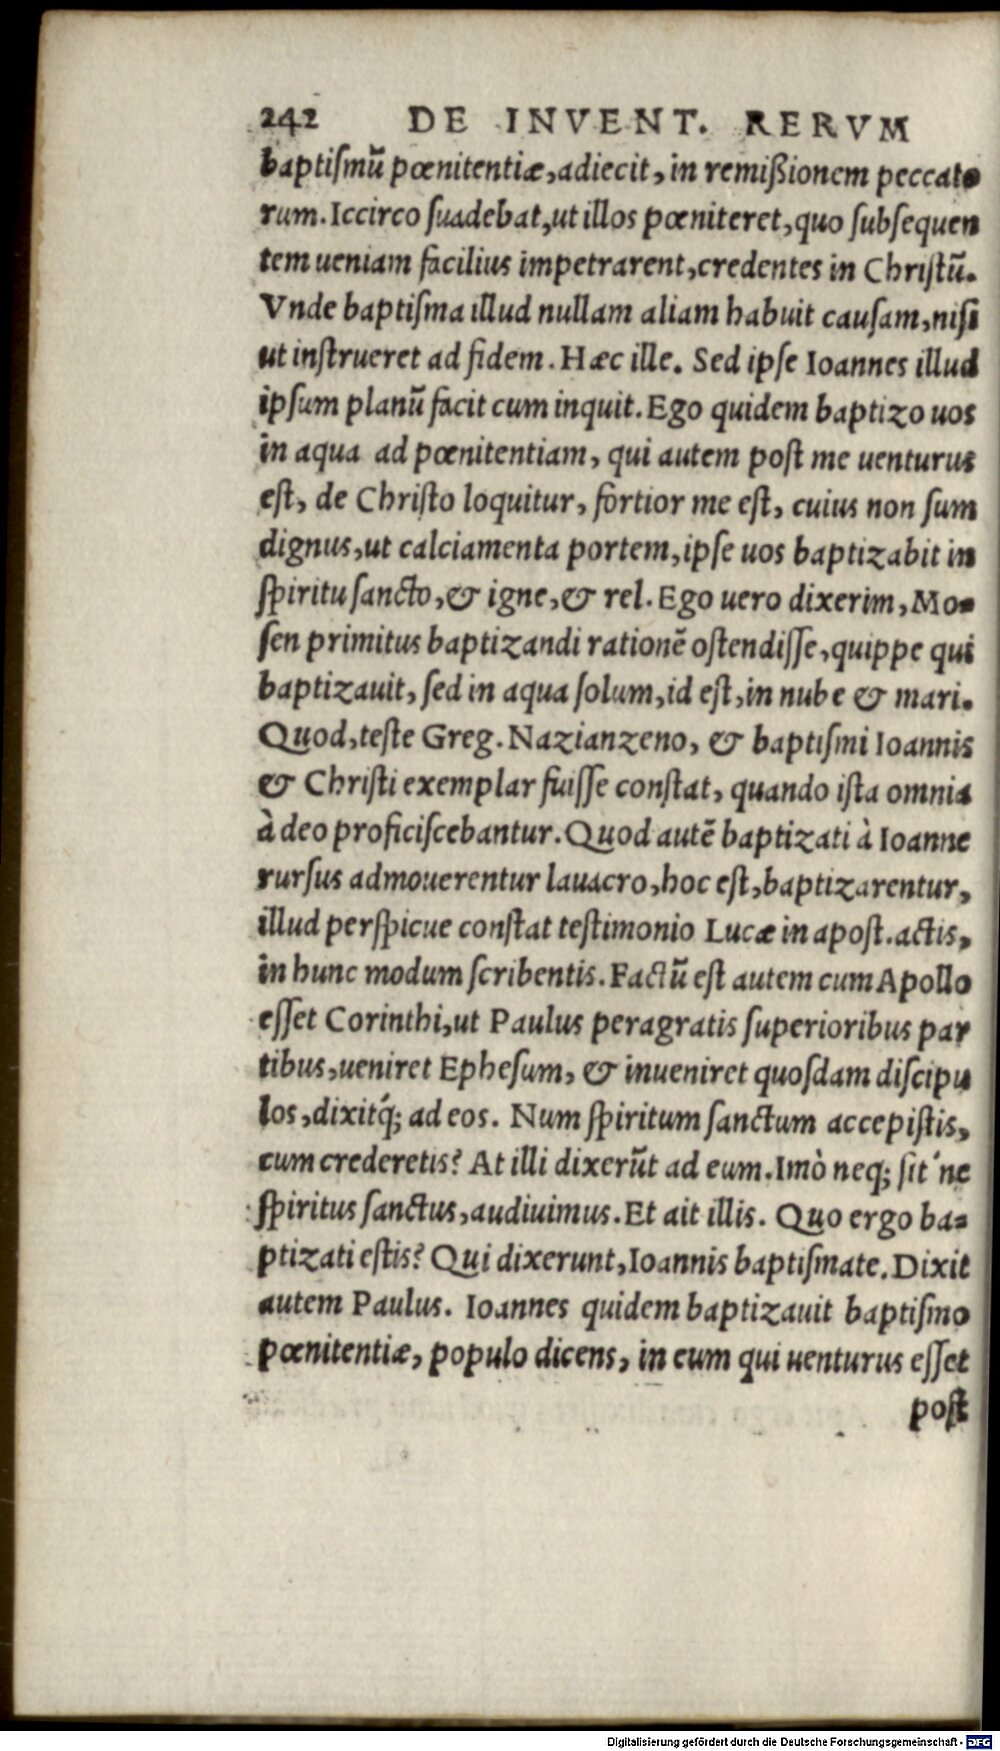 242 DE INVENT. RERVM
baptiſmũ pœnitentiæ, adiecit, in remißionem peccato
rum. Iccirco ſuadebat, ut illos pœniteret, quo ſubſequen
tem ueniam facilius impetrarent, credentes in Chriſtũ.
Vnde baptiſma illud nullam aliam habuit cauſam, niſi
ut inſtrueret ad fidem. Hæc ille. Sed ipſe Ioannes illud
ipſum planũ facit cum inquit. Ego quidem baptizo uos
in aqua ad pœnitentiam, qui autem poſt me uenturus
eſt, de Chriſto loquitur, fortior me eſt, cuius non ſum
dignus, ut calciamenta portem, ipſe uos baptizabit in
ſpiritu ſancto, & igne, & rel. Ego uero dixerim, Mo-
ſen primitus baptizandi rationẽ oſtendiſſe, quippe qui
baptizauit, ſed in aqua ſolum, id eſt, in nube & mari.
Quod, teſte Greg. Nazianzeno, & baptiſmi Ioannis
& Chriſti exemplar fuiſſe conſtat, quando iſta omnia
à deo proficiſcebantur. Quod autẽ baptizati à Ioanne
rurſus admouerentur lauacro, hoc eſt, baptizarentur,
illud perſpicue conſtat teſtimonio Lucæ in apoſt. actis,
in hunc modum ſcribentis. Factũ eſt autem cum Apollo
eſſet Corinthi, ut Paulus peragratis ſuperioribus par
tibus, ueniret Epheſum, & inueniret quoſdam diſcipu
los, dixitq́; ad eos. Num ſpiritum ſanctum accepiſtis,
cum crederetis? At illi dixerũt ad eum. Imò neq; ſit'ne
ſpiritus ſanctus, audiuimus. Et ait illis. Quo ergo ba-
ptizati eſtis? Qui dixerunt, Ioannis baptiſmate. Dixit
autem Paulus. Ioannes quidem baptizauit baptiſmo
pœnitentiæ, populo dicens, in eum qui uenturus eſſet
poſt
Digitalisierung gefördert durch die Deutsche Forschungsgemeinschaft - DFG